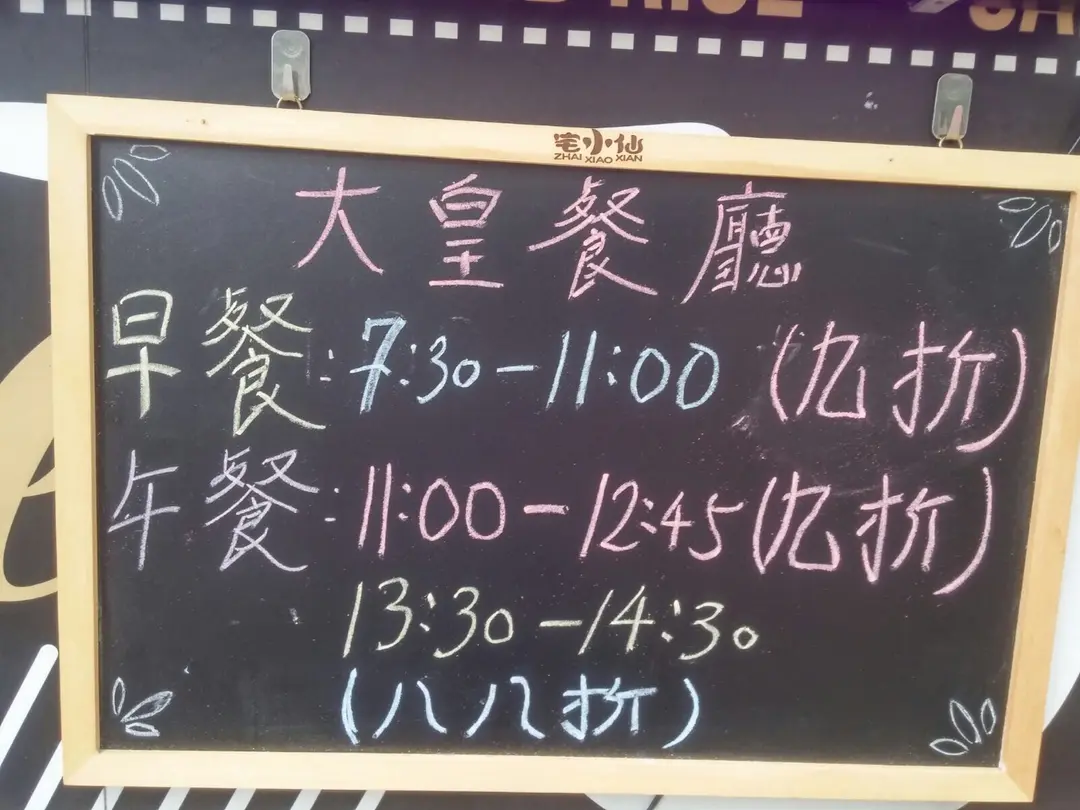 宅小仙
ZHAI XIAO XIAN
大皇餐廳
早餐:7:30-11:00(九折)
午餐:11:00-12:45(九折)
13:30-14:30
(八八折)